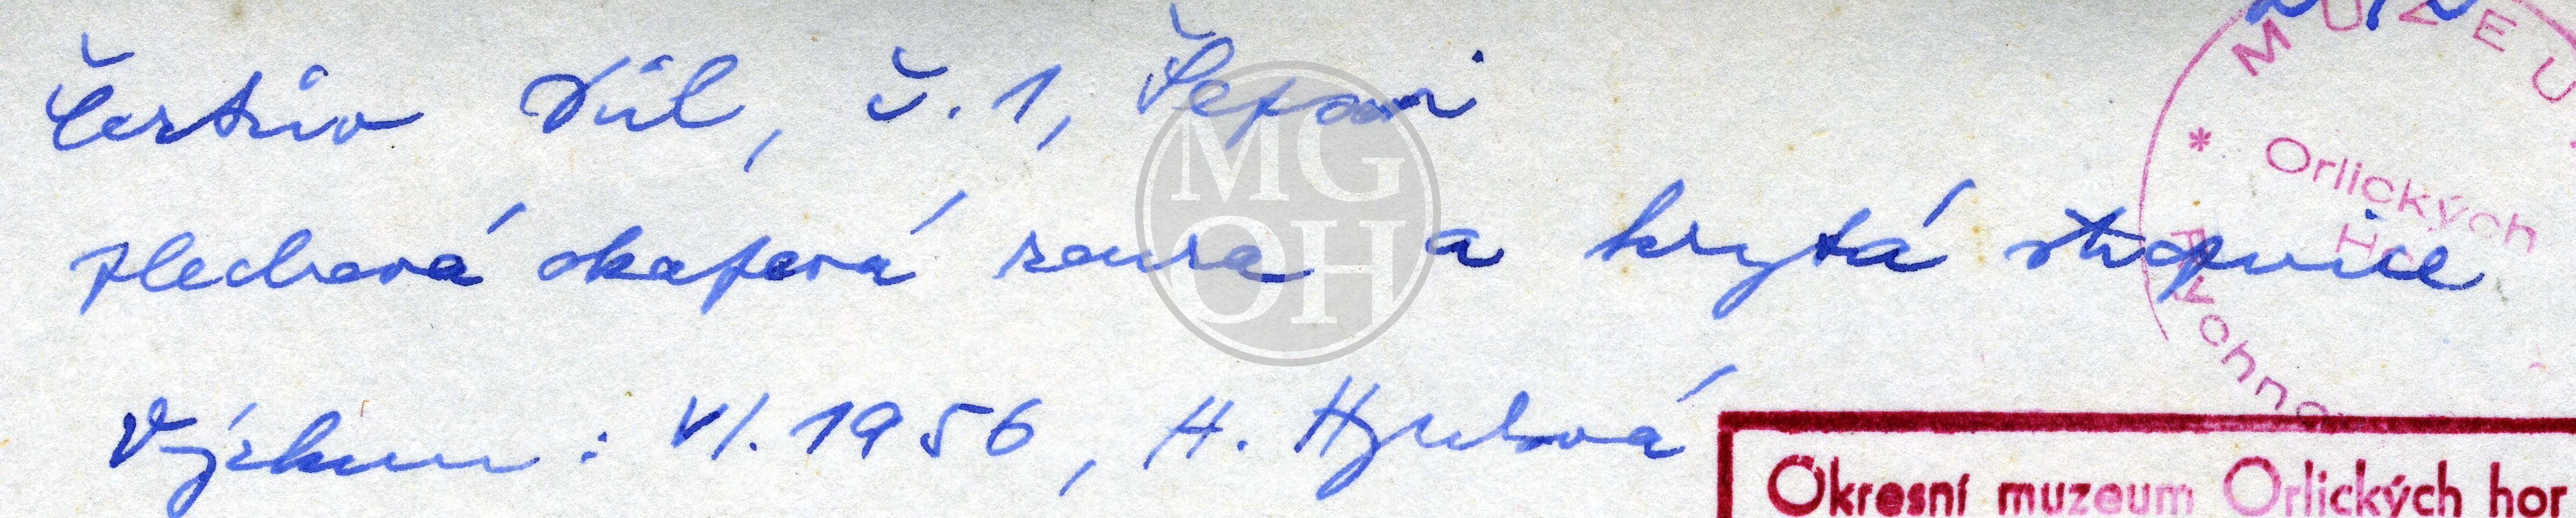 Čertův Důl, č. 1, Čepari
plechová okapová roura a krytá stropnice
Výzkum: VI. 1956, H. Hynková
MUZEU
* Orlických
Ho
Rychno
MG
OH
Okresní muzeum Orlických hor